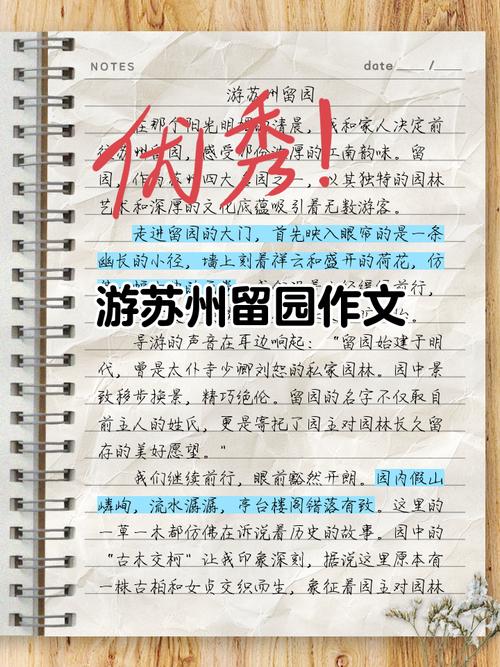 NOTES
date ____ / ___
游苏州留园
优秀!
在那个阳光明媚的清晨，我和家人决定前
往苏州留园，感受那份浓厚的江南韵味。留
园，作为苏州四大名园之一，以其独特的园林
艺术和深厚的文化底蕴吸引着无数游客。
走进留园的大门，首先映入眼帘的是一条
幽长的小径，墙上刻着祥云和盛开的荷花，仿
游苏州留园作文
前行，
导游的声音在耳边响起："留园始建于明
代，曾是太仆寺少卿刘恕的私家园林。园中景
致移步换景，精巧绝伦。留园的名字不仅取自
前主人的姓氏，更是寄托了园主对园林长久留
存的美好愿望。"
我们继续前行，眼前豁然开朗。园内假山
嶙峋，流水潺潺，亭台楼阁错落有致。这里的
一草一木都仿佛在诉说着历史的故事。园中的
"古木交柯"让我印象深刻，据说这里原本有
一株古柏和女贞交织而生，象征着园主对园林